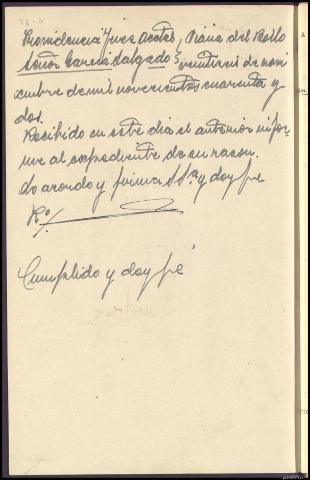 Providencia Juez Acctal. Viana del Bollo
Señor García Salgado veintiseis de novi
embre de mil novecientos cuarenta y
dos.
Recibido en este dia el anterior infor-
me al expediente de su razon.
Lo acordo y firma SSª y doy fe
Cumplido y doy fe